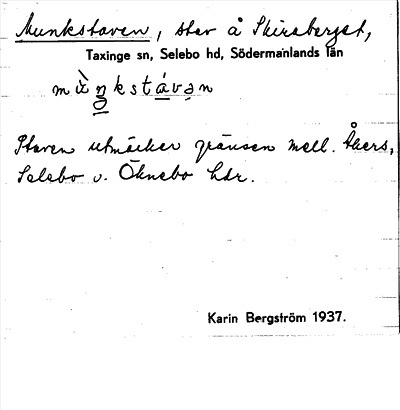 Munkstaven, stav å Skiraberget,
Taxinge sn, Selebo hd, Södermanlands län
Staven utmärker gränsen mell. Åkers,
Selebo o. Öknebo hdr.
Karin Bergström 1937.